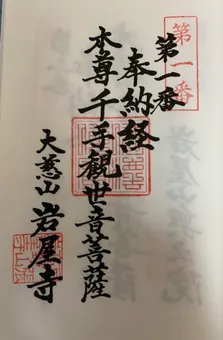 第一番
第一番
奉納経
本尊千手観世音菩薩
大慈山 岩屋寺